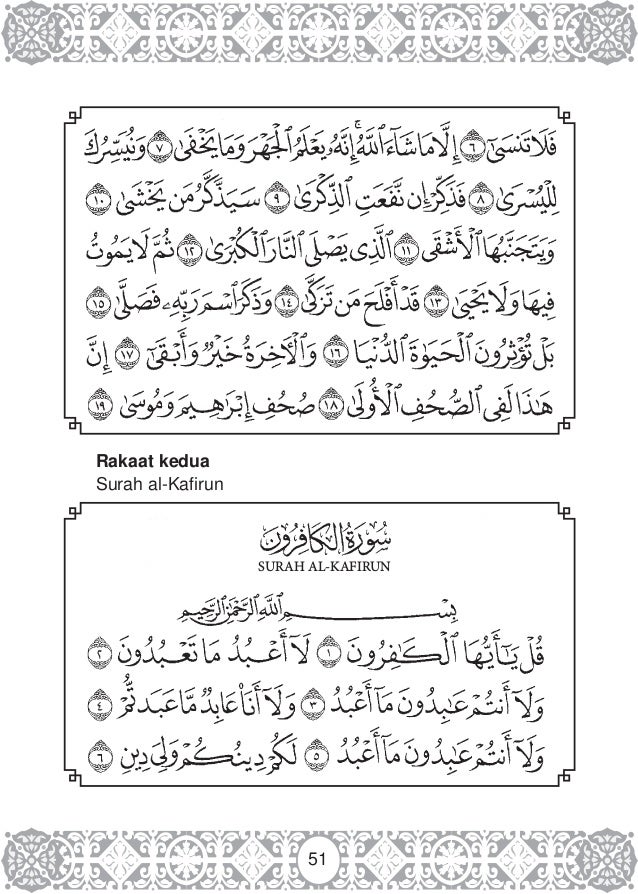 فَلَا تَنسَىٰٓ ٦ إِلَّا مَا شَآءَ ٱللَّهُ ۚ إِنَّهُۥ يَعْلَمُ ٱلْجَهْرَ وَمَا يَخْفَىٰ ٧ وَنُيَسِّرُكَ
لِلْيُسْرَىٰ ٨ فَذَكِّرْ إِن نَّفَعَتِ ٱلذِّكْرَىٰ ٩ سَيَذَّكَّرُ مَن يَخْشَىٰ ١٠
وَيَتَجَنَّبُهَا ٱلْأَشْقَى ١١ ٱلَّذِى يَصْلَى ٱلنَّارَ ٱلْكُبْرَىٰ ١٢ ثُمَّ لَا يَمُوتُ
فِيهَا وَلَا يَحْيَىٰ ١٣ قَدْ أَفْلَحَ مَن تَزَكَّىٰ ١٤ وَذَكَرَ ٱسْمَ رَبِّهِۦ فَصَلَّىٰ ١٥
بَلْ تُؤْثِرُونَ ٱلْحَيَوٰةَ ٱلدُّنْيَا ١٦ وَٱلْءَاخِرَةُ خَيْرٌ وَأَبْقَىٰٓ ١٧ إِنَّ
هَٰذَا لَفِى ٱلصُّحُفِ ٱلْأُولَىٰ ١٨ صُحُفِ إِبْرَٰهِيمَ وَمُوسَىٰ ١٩
Rakaat kedua
Surah al-Kafirun
سُورَةُ الكَافِرُونَ
SURAH AL-KAFIRUN
بِسْمِ ٱللَّهِ ٱلرَّحْمَٰنِ ٱلرَّحِيمِ
قُلْ يَٰٓأَيُّهَا ٱلْكَٰفِرُونَ ١ لَآ أَعْبُدُ مَا تَعْبُدُونَ ٢
وَلَآ أَنتُمْ عَٰبِدُونَ مَآ أَعْبُدُ ٣ وَلَآ أَنَا۠ عَابِدٌ مَّا عَبَدتُّمْ ٤
وَلَآ أَنتُمْ عَٰبِدُونَ مَآ أَعْبُدُ ٥ لَكُمْ دِينُكُمْ وَلِىَ دِينِ ٦
51